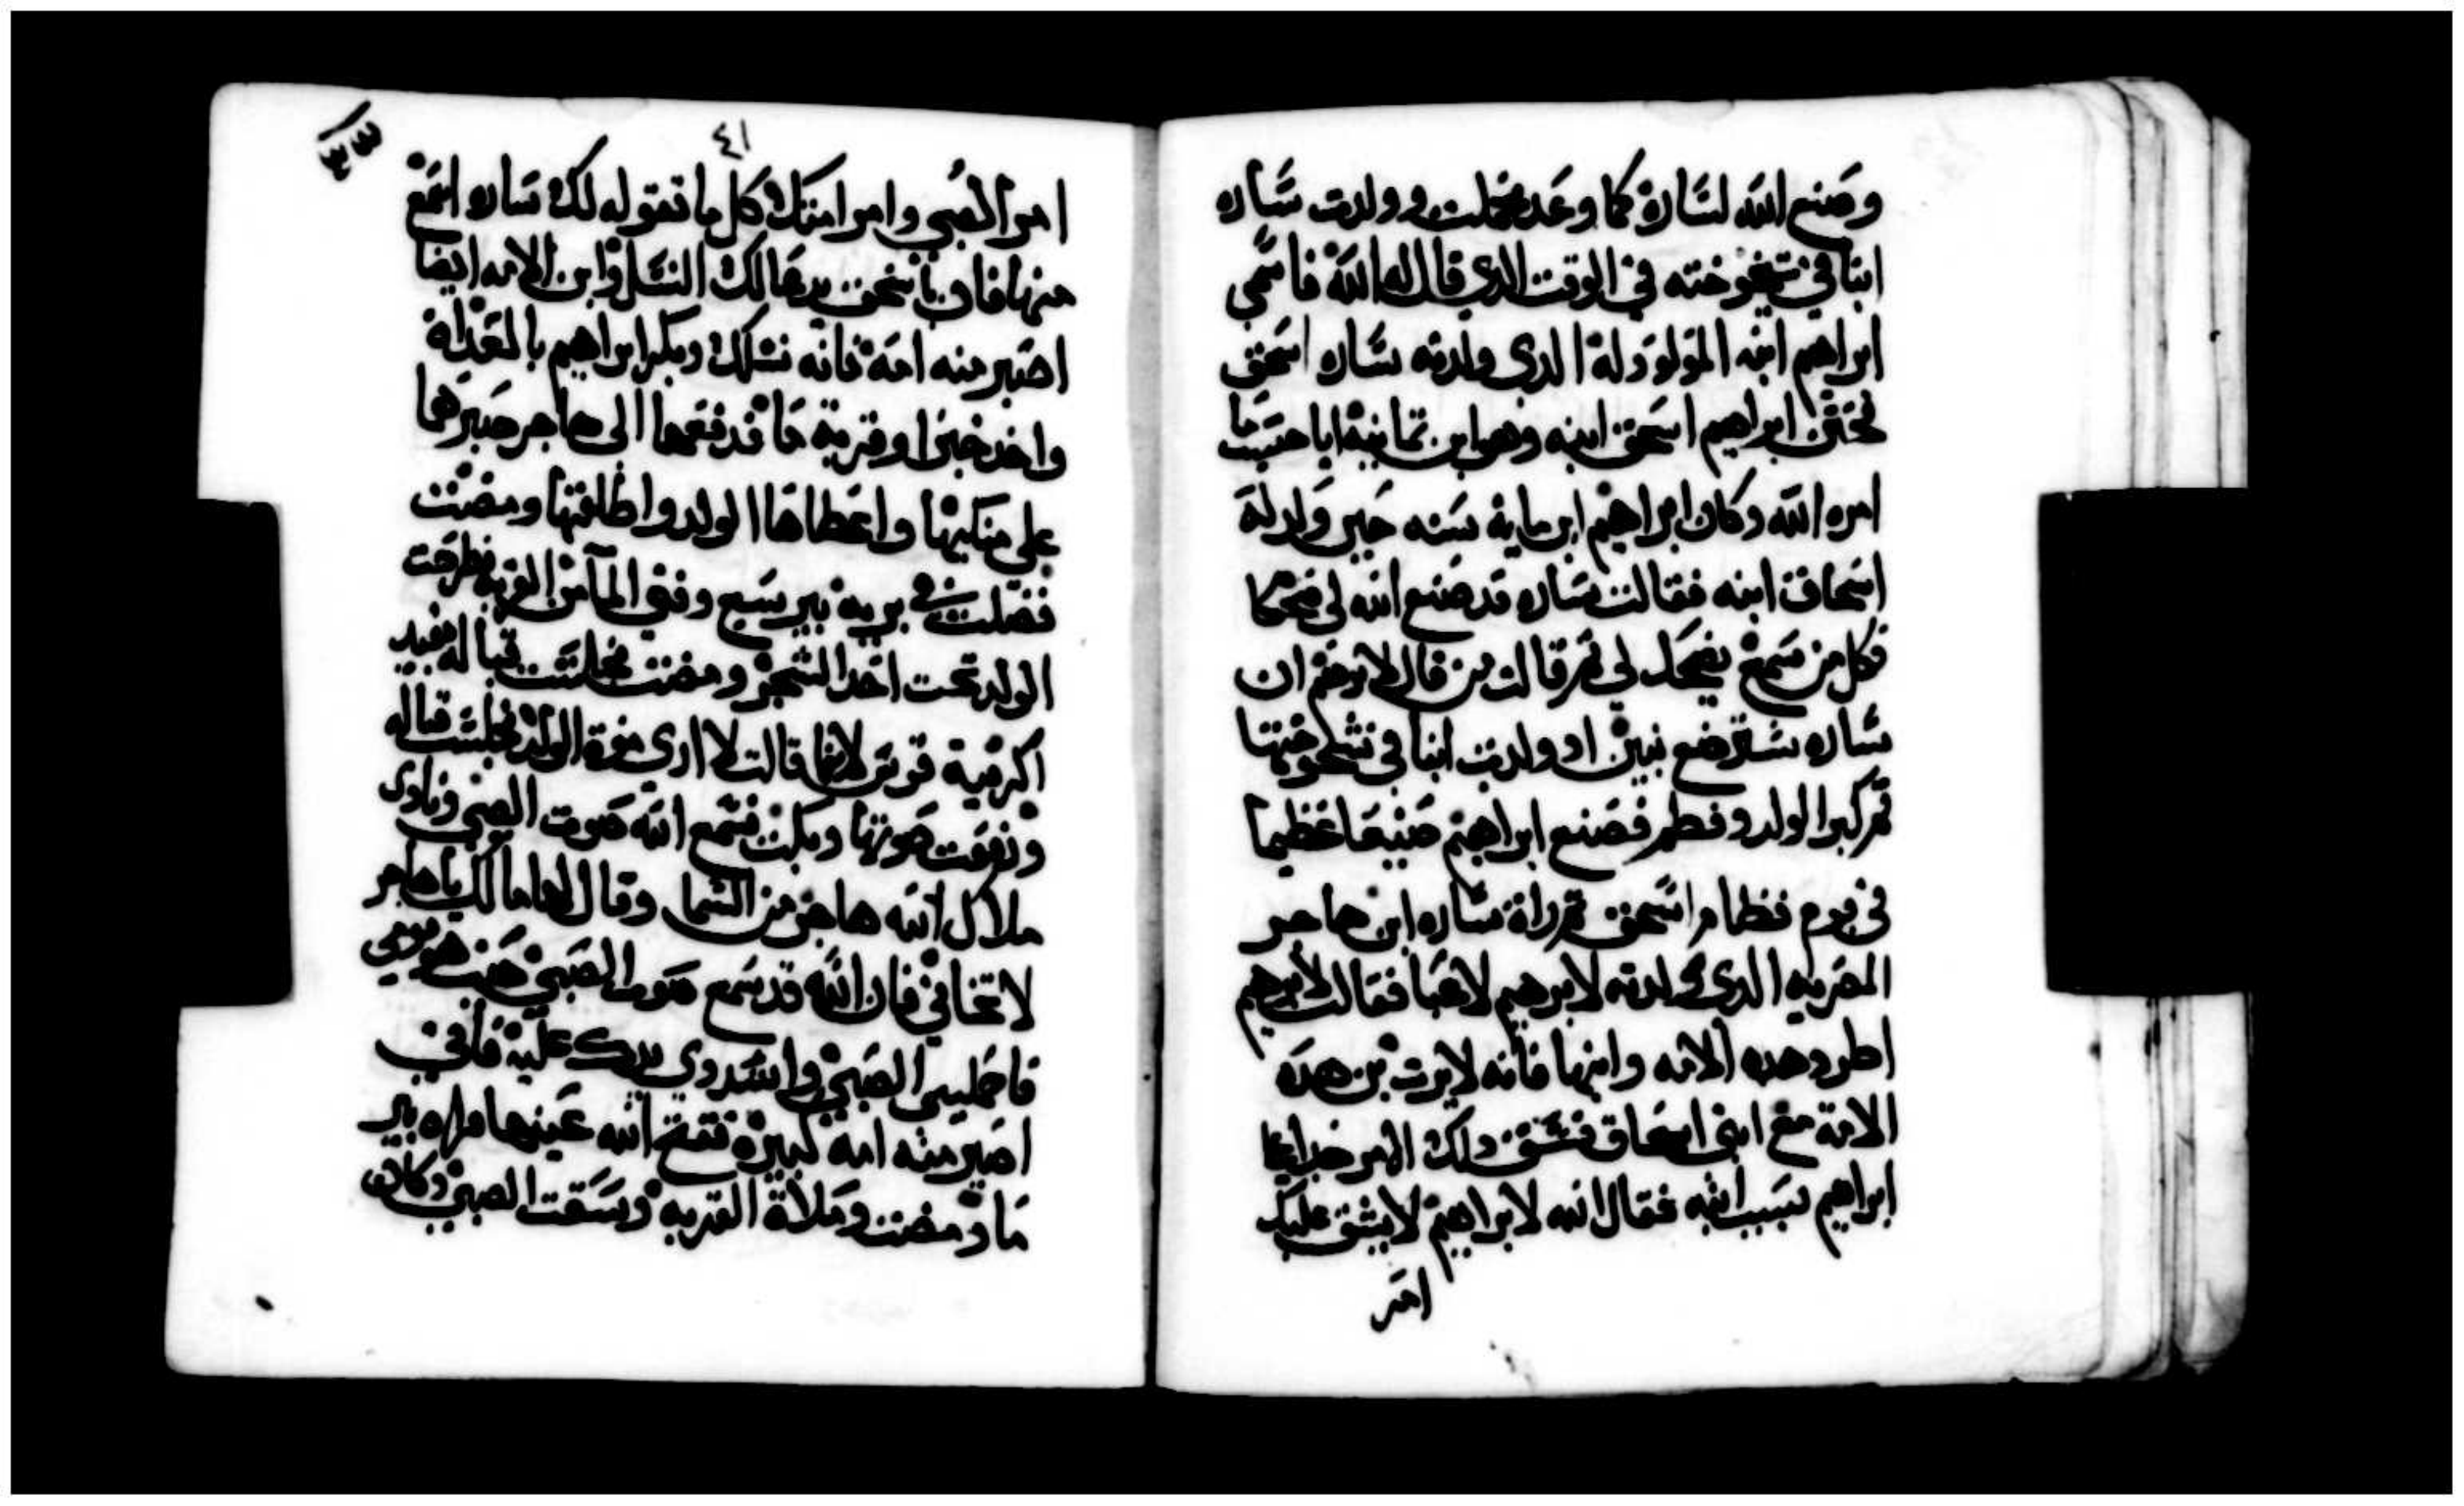 وصنع الله لساره كما وعد فحملت وولدت ساره
ابنا في شيخوخته في الوقت الدي قال له الله فاسمى
ابراهيم ابنه المولود له الدى ولدته ساره اسحق
فختن ابراهيم اسحق ابنه وهو ابن تمانية اياما حسبما
امره الله وكان ابراهيم ابن ماية سنه حين ولد له
اسحاق ابنه فقالت ساره قد صنع الله لي ضحكا
فكل من سمع يضحك لي تم قالت من قال لابرهيم ان
ساره سترضع بنين اد ولدت ابنا في شيخوختها
تم كبر الولد وفطم فصنع ابراهيم صنيعا عظيما
في يوم فطام اسحق تم راة ساره ابن هاجر
المصريه الدى ولدته لابرهيم لاعبا فقالت لابرهيم
اطرد هده الامه وابنها فانه لا يرت بن هده
الامة مع ابني اسحاق فشق دلك الامر جدا على
ابراهيم بسبب ابنه فقال الله لابراهيم لا يشق عليك
امر
٤١
امر الصبي وامر امتك كل ما تقوله لك ساره اسمع
منها فان باسحق يدعا لك النسل وابن الامه ايضا
اصير منه امة فانه نسلك وبكر ابراهيم بالغداة
واخد خبزا وقربة ما فدفعها الى هاجر صيرهما
على منكبيها واعطاها الولد واطلقها ومضت
فضلت في برية بير سبع وفني الما من القربه فطرحت
الولد تحت احد الشجر ومضت فجلست قباله بعيد
كرمية قوس لانها قالت لا ارى موة الولد فجلست قباله
ورفعت صوتها وبكت فسمع الله صوت الصبي ونادى
ملاك الله هاجر من السما وقال لها ما لك يا هاجر
لا تخافي فان الله قد سمع صوت الصبي حيت هو قومي
فاحملي الصبي واشددي يدك عليه فاني
اصير منه امة كبيرة ففتح الله عينها فراه بير
ما ومضت وملاة القربه وسقت الصبي وكان